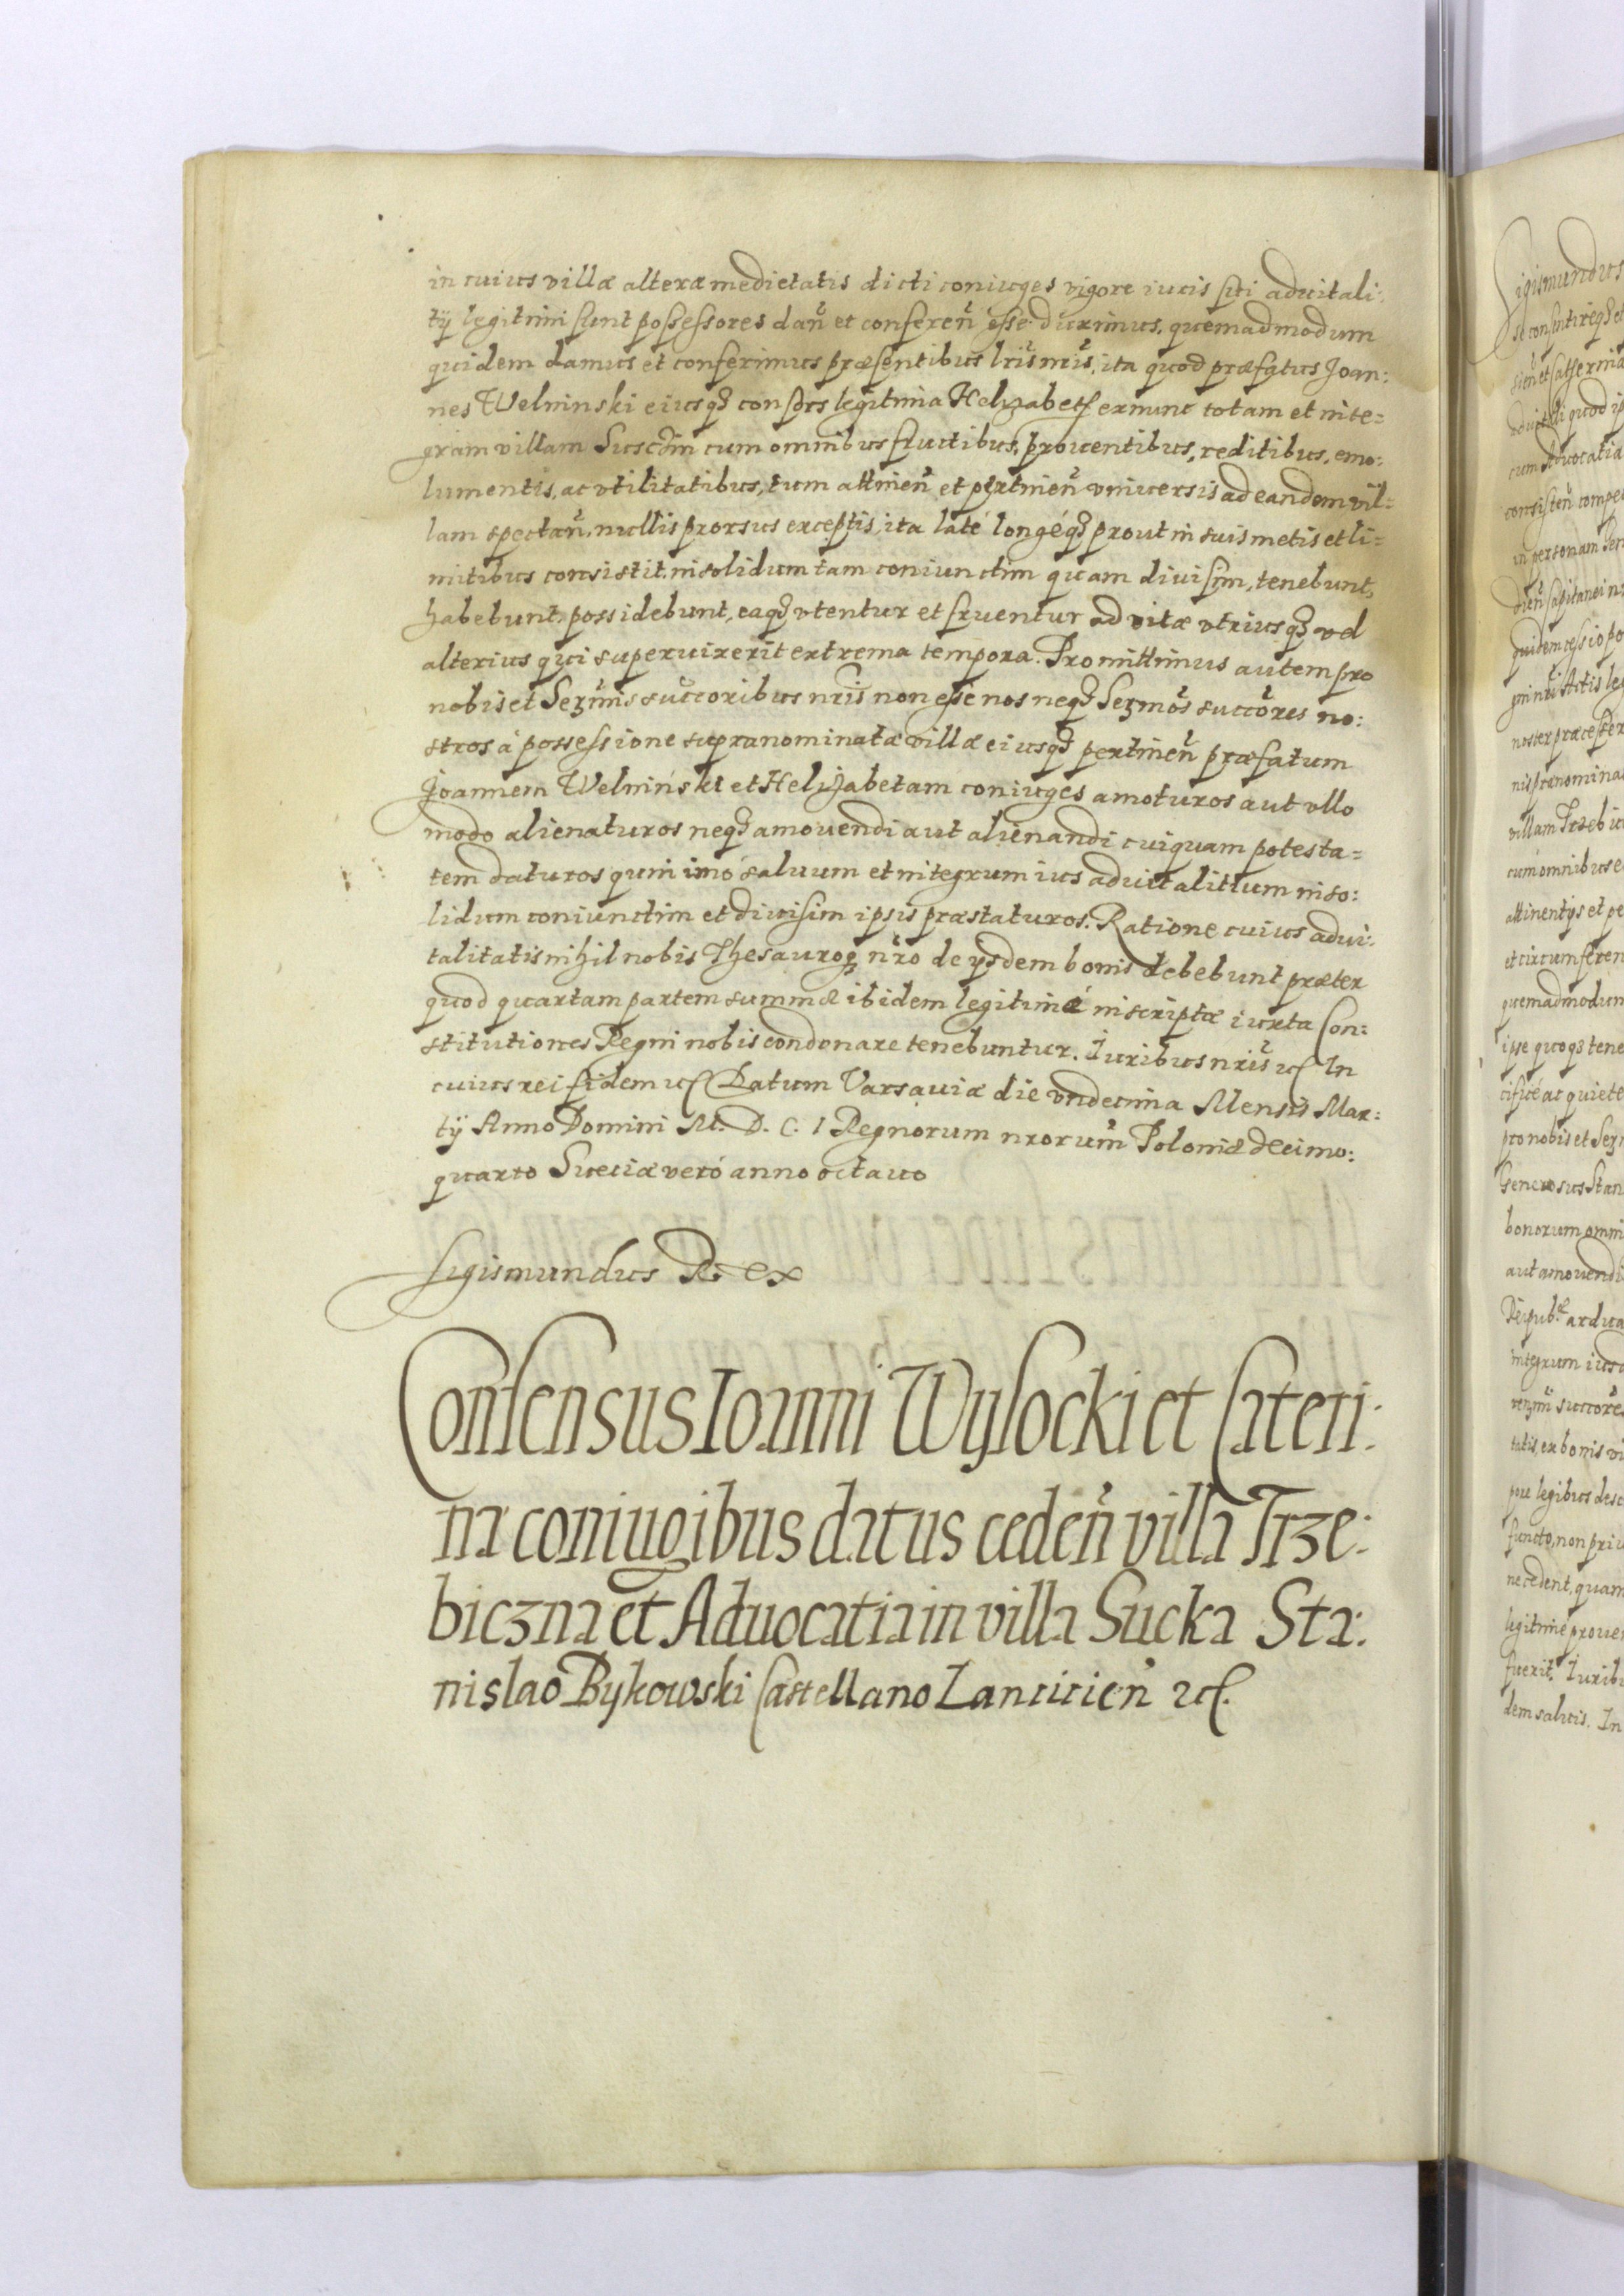 in cuius villæ alteræ medietatis dicti coniuges vigore iuris sui aduitali:
tÿ legitimi sunt possessores dan̄ et conferen̄ esse duximus, quemadmodum
quidem damus et conferimus præsentibus lr̄is nr̄is, ita quod præfatus Joan:
nes Welninski eiusqꝫ consors legitima Helizabeth ex nunc totam et inte=
gram villam cum omnibus fructibus, prouentibus, reditibus, emo:
lumentis, ac vtilitatibus, tum attinen̄ et pertinen̄ vniuersis ad eandem vil=
lam spectan̄, nullis prorsus exceptis, ita laté longéqꝫ prout in suis metis et li=
mitibus consistit, in solidum tam coniunctim quam diuisim, tenebunt,
habebunt, possidebunt, eaqꝫ vtentur et fruentur ad vitæ vtriusqꝫ vel
alterius qui superuixerit extrema tempora. Promittimus autem pro
nobis et Serm̄is succ̄oribus nr̄is non esse nos neqꝫ Serm̄os succōres no:
stros à possessione supranominatæ villæ eiusqꝫ pertinen̄ præfatum
Joannem Welniński et Helizabetam coniuges amoturos aut vllo
modo alienaturos neqꝫ amouendi aut alienandi cuiquam potesta=
tem daturos quin imó saluum et integrum ius aduitalitium in so:
lidum coniunctim et diuisim ipsis præstaturos. Ratione cuius adui:
talitatis nihil nobis Thesauroqꝫ nr̄o de ijsdem bonis debebunt præter
quod quartam partem summæ ibidem legitimé inscriptæ iuxta Con:
stitutiones Regni nobis condonare tenebuntur. Iuribus nr̄is ⁊c In
cuius rei fidem ⁊c Datum Varsauiæ die vndecima Mensis Mar:
tÿ Anno Domini M. D. C. I Regnorum nrorum̄ Poloniæ decimo:
quarto Sueciæ veró anno octauo
Sigismundus Rex
Consensus Ioanni Wysocki et Cateri:
næ coniugibus datus ceden̄ villa Trze:
biczna et Aduocatia in villa Sucka Sta:
nislao Bykowski Castellano Lancicien̄ ⁊c.